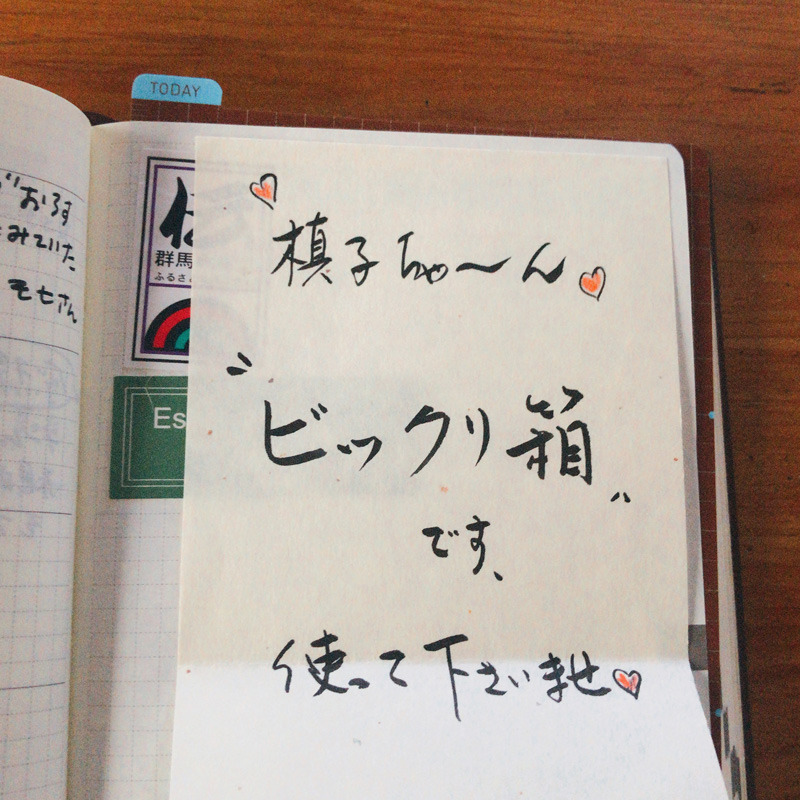 TODAY
おろす
みていた
モセさん
群馬
ふるさと
Es
槙子ちゃ〜ん
"ビックリ箱"
です、
使って下さいませ